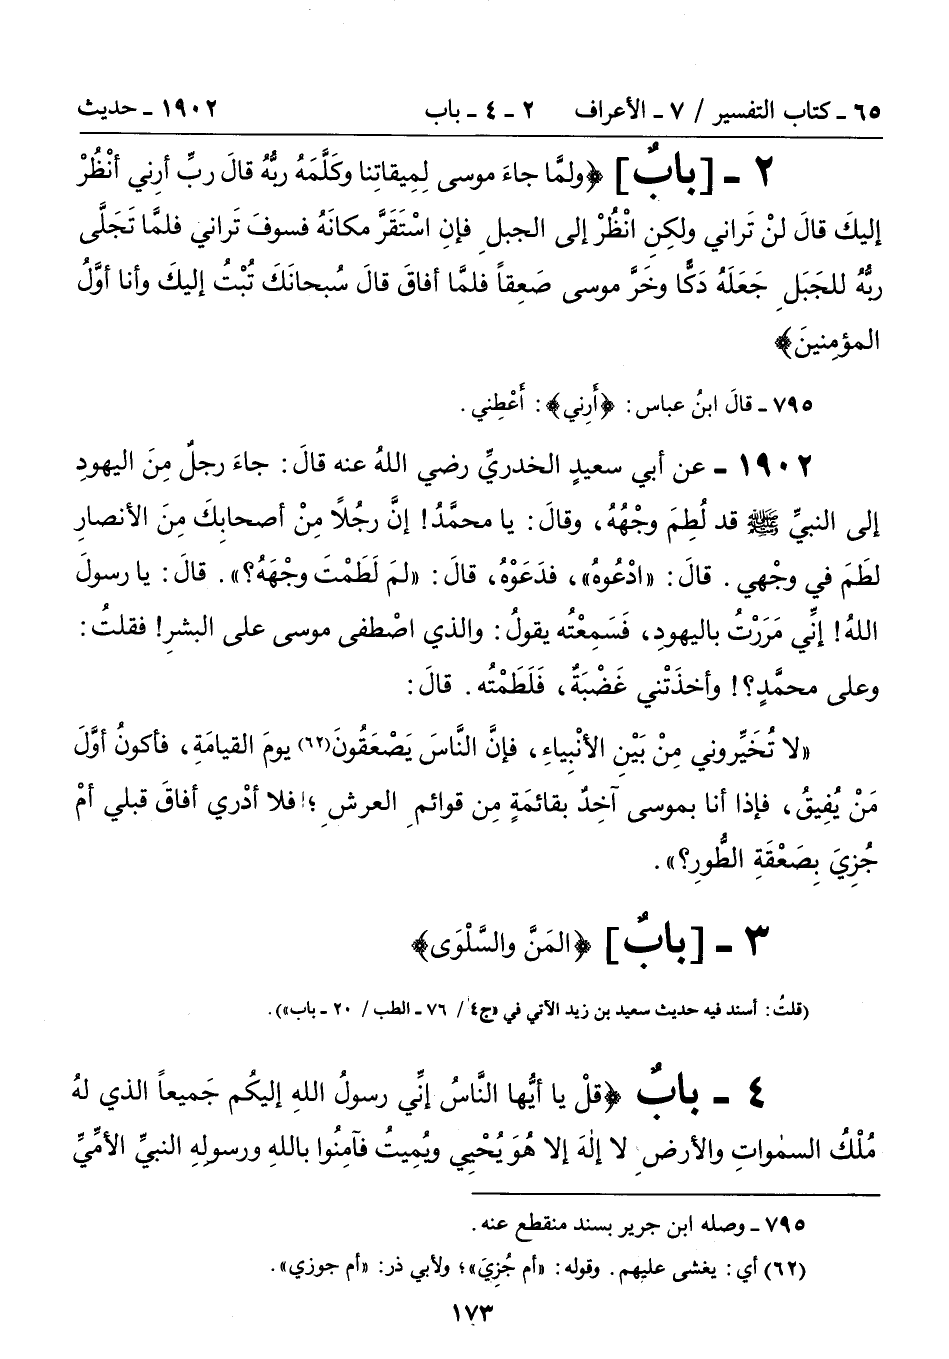 ٦٥ ـ كتاب التفسير / ٧ ـ الأعراف ٢ ـ ٤ ـ باب ١٩٠٢ ـ حديث
٢ ـ [بابٌ] ﴿ولمَّا جاءَ موسى لِميقاتِنا وكَلَّمَهُ ربُّهُ قالَ ربِّ أرِني أنْظُرْ
إليكَ قالَ لنْ تَراني ولكنِ انْظُرْ إلى الجبلِ فإنِ اسْتَقَرَّ مكانَهُ فسوفَ تَراني فلمَّا تَجَلَّى
ربُّهُ للجَبَلِ جَعَلَهُ دَكًّا وخَرَّ موسى صَعِقاً فلمَّا أفاقَ قالَ سُبحانَكَ تُبْتُ إليكَ وأنا أوَّلُ
المؤمِنينَ﴾
٧٩٥ ـ قالَ ابنُ عباس: ﴿أَرِني﴾: أَعْطِني.
١٩٠٢ ـ عن أبي سعيدٍ الخدريِّ رضي اللهُ عنه قالَ: جاءَ رجلٌ مِنَ اليهودِ
إلى النبيِّ ﷺ قد لُطِمَ وجْهُهُ، وقالَ: يا محمَّدُ! إنَّ رجُلًا مِنْ أصحابِكَ مِنَ الأنصارِ
لطَمَ في وجْهي. قالَ: «ادْعُوهُ»، فدَعَوْهُ، قالَ: «لمَ لَطَمْتَ وجْهَهُ؟». قالَ: يا رسولَ
اللهُ! إنِّي مَرَرْتُ باليهودِ، فَسَمِعْتُه يقولُ: والذي اصْطفى موسى على البشرِ! فقلتُ:
وعلى محمَّدٍ؟! وأخذَتْني غَضْبَةٌ، فَلَطَمْتُه. قالَ:
«لا تُخَيِّروني مِنْ بَيْنِ الأنْبياءِ، فإنَّ النَّاسَ يَصْعَقُونَ(٦٢) يومَ القيامَةِ، فأكونُ أوَّلَ
مَنْ يُفيقُ، فإذا أنا بموسى آخِذٌ بقائمَةٍ مِن قوائمِ العرشِ؛ فلا أدْري أفاقَ قبلي أمْ
جُزِيَ بِصَعْقَةِ الطُّورِ؟».
٣ ـ [بابٌ] ﴿المَنَّ والسَّلْوَى﴾
(قلتُ: أسند فيه حديث سعيد بن زيد الآتي في «ج٤ / ٧٦ ـ الطب / ٢٠ ـ باب»).
٤ ـ بابٌ ﴿قلْ يا أيُّها النَّاسُ إنِّي رسولُ اللهِ إليكُم جَميعاً الذي لهُ
مُلْكُ السمٰواتِ والأرضِ لا إلٰهَ إلا هُوَ يُحْيِي ويُميتُ فآمِنُوا باللهِ ورسولِهِ النبيِّ الأمِّيِّ
٧٩٥ ـ وصله ابن جرير بسند منقطع عنه.
(٦٢) أي: يغشى عليهم. وقوله: «أم جُزِيَ»؛ ولأبي ذر: «أم جوزي».
١٧٣